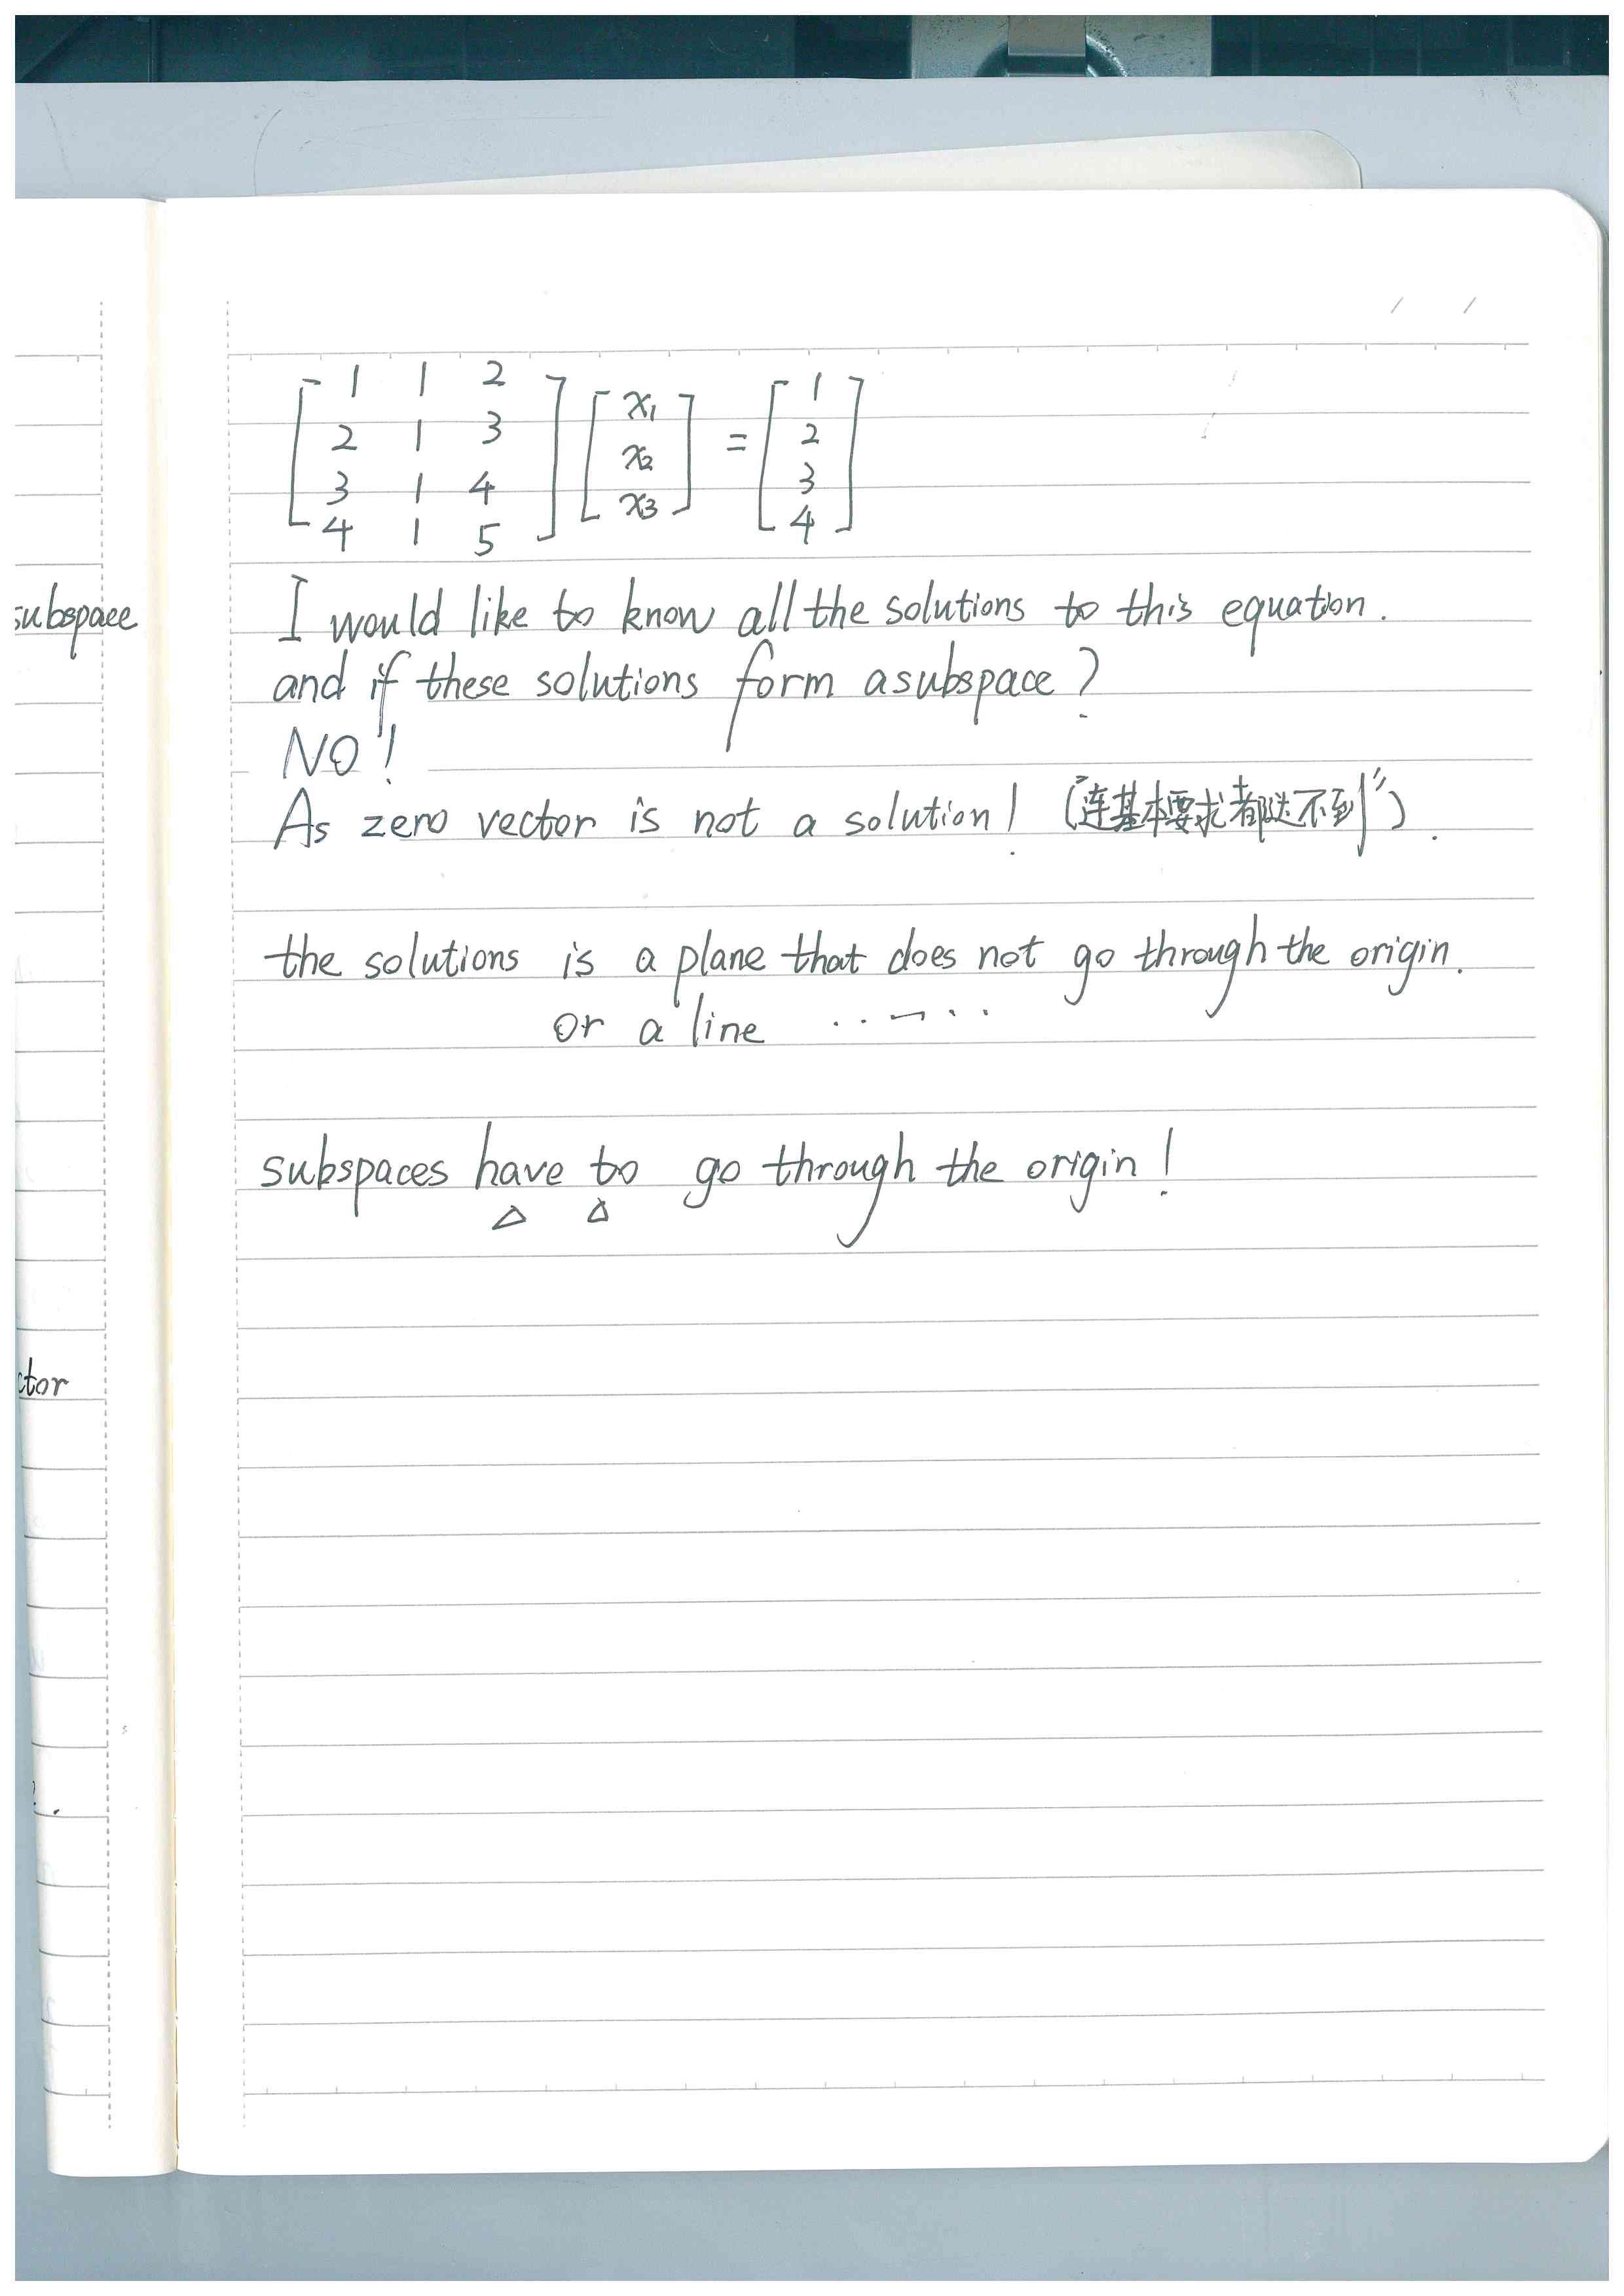 subspace
ctor
[ 1 1 2 ] [ x₁ ] = [ 1 ]
[ 2 1 3 ] [ x₂ ] [ 2 ]
[ 3 1 4 ] [ x₃ ] [ 3 ]
[ 4 1 5 ] [ 4 ]
I would like to know all the solutions to this equation.
and if these solutions form a subspace?
NO!
As zero vector is not a solution! ("连基本要求都达不到").
the solutions is a plane that does not go through the origin.
or a line ......
subspaces have to go through the origin!
△ △